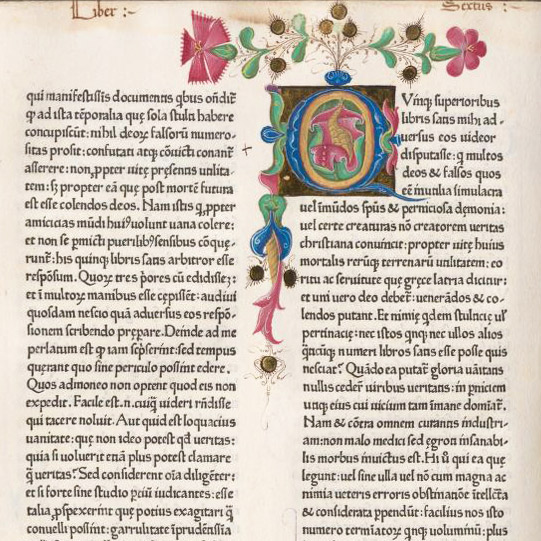 Liber :~
Sextus :~
qui manifestissis documentis qbus ondit̄
ꝙ ad ista temporalia quę sola stulti habere
concupiscūt: nihil deoꝝ falsorū numero-
sitas prosit: confutati atqꝫ cōuicti conant̄
asserere: non ꝓpter uitę pręsentis utilita-
tem: s; propter eā quę post mortē futura
est esse colendos deos. Nam istis q ꝓpter
amicicias mūdi huiꝰ uolunt uana colere:
et non se pmicti puerilibꝰ sensibus cōquę-
runt: his quinqꝫ libris satis arbitror esse
respōsum. Quoꝝ tres pores cū edidissē:
et ī multoꝝ manibus esse cępissēt: audiui
quosdam nescio quā aduersus eos respō-
sionem scribendo prępare. Deinde ad me
perlatum est ꝙ iam scpserint: sed tempus
quęrant quo sine periculo possint edere.
Quos admoneo non optent quod eis non
expedit. Facile est .n. cuiqꝫ uideri rn̄disse
qui tacere noluit. Aut quid est loquacius
uanitate: quę non ideo potest qđ ueritas:
quia si uoluerit etiā plus potest clamare
q̄ ueritas? Sed considerent oīa diligēter:
et si forte sine studio ptiū iudicantes: esse
talia pspexerint quę potius exagitari q̄
conuelli possint: garrulitate īprudētissīa
QVinqꝫ superioribus
libris satis mihi ad-
uersus eos uideor
disputasse: q multos
deos & falsos quos
eē īnutilia simulacra
uel īmūdos spūs & perniciosa dęmonia:
uel certe creaturas nō creatorem ueritas
christiana conuincit: propter uitę huius
mortalis rerūqꝫ terrenarū utilitatem: eo
ritu ac seruitute quę gręce latria dicitur:
et uni uero deo debet̄: uenerādos & co-
lendos putant. Et nimię qdem stulticię ul̄
pertinacię: nec istos qnqꝫ nec ullos alios
q̄ticūqꝫ numeri libros satis esse posse quis
nesciat? Quādo ea putat̄ gloria uāitatis
nullis cedere uiribus ueritatis: in pniciem
utiqꝫ eius cui uicium tam īmane domīat̄.
Nam & cōtra omnem curantis industri-
am: non malo medici sed ęgroti insanabi-
lis morbus inuictus est. Hi ū qui ea quę
legunt: uel sine ulla uel nō cum magna ac
nimia ueteris erroris obstinatiōe ītellcta
& considerata ppendūt: facilius nos isto
numero termiatoꝝ qnqꝫ uoluminū: plus